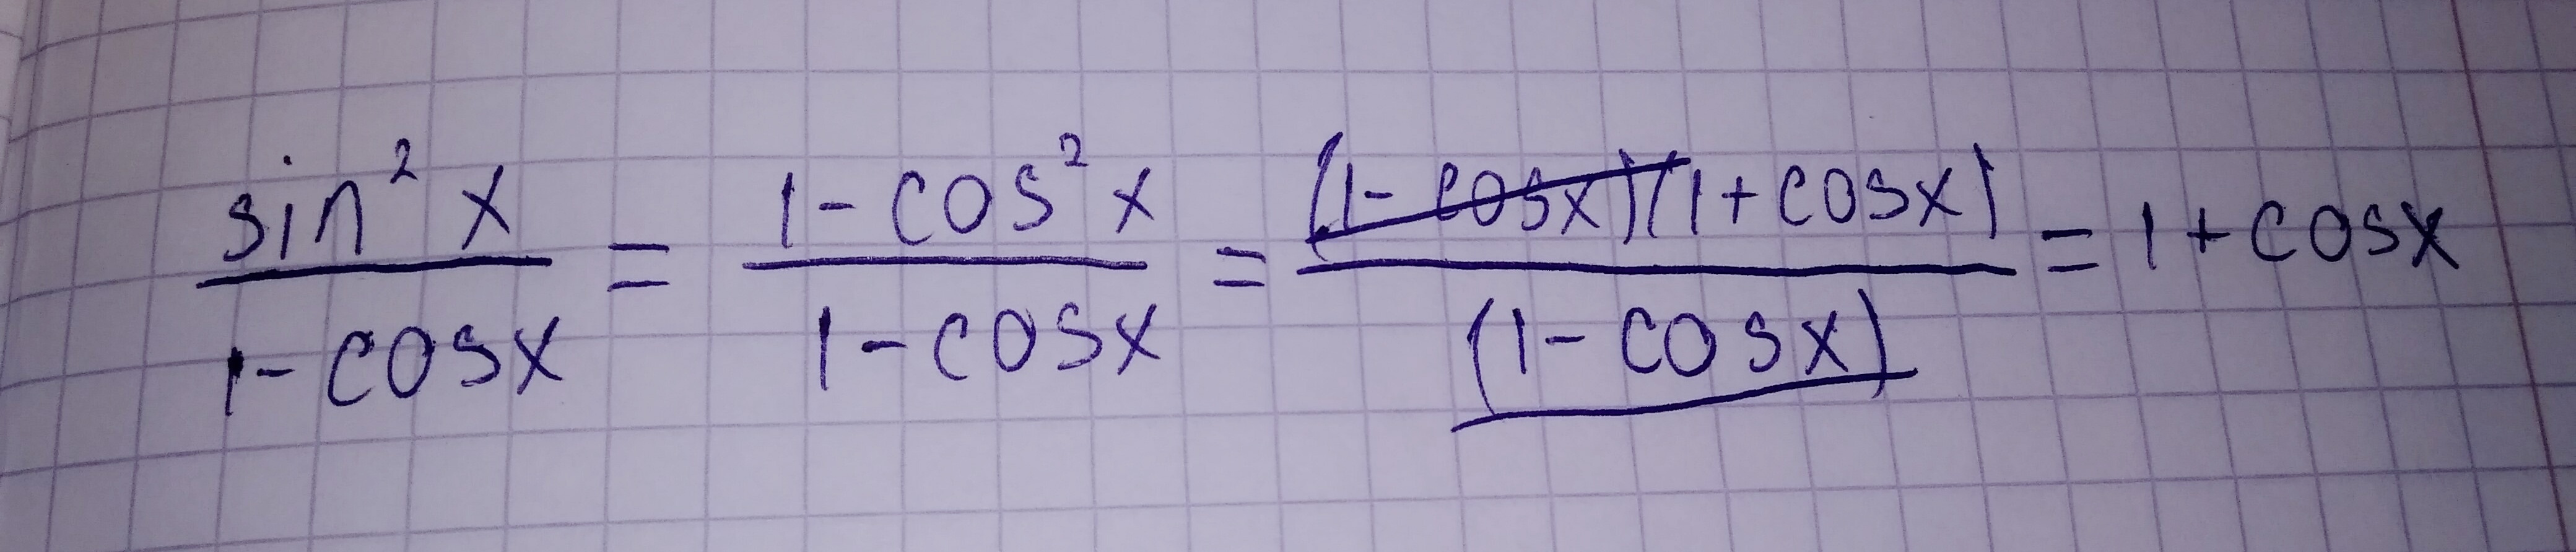 sin²x / 1-cosx = 1-cos²x / 1-cosx = (1-cosx)(1+cosx) / (1-cosx) = 1+cosx